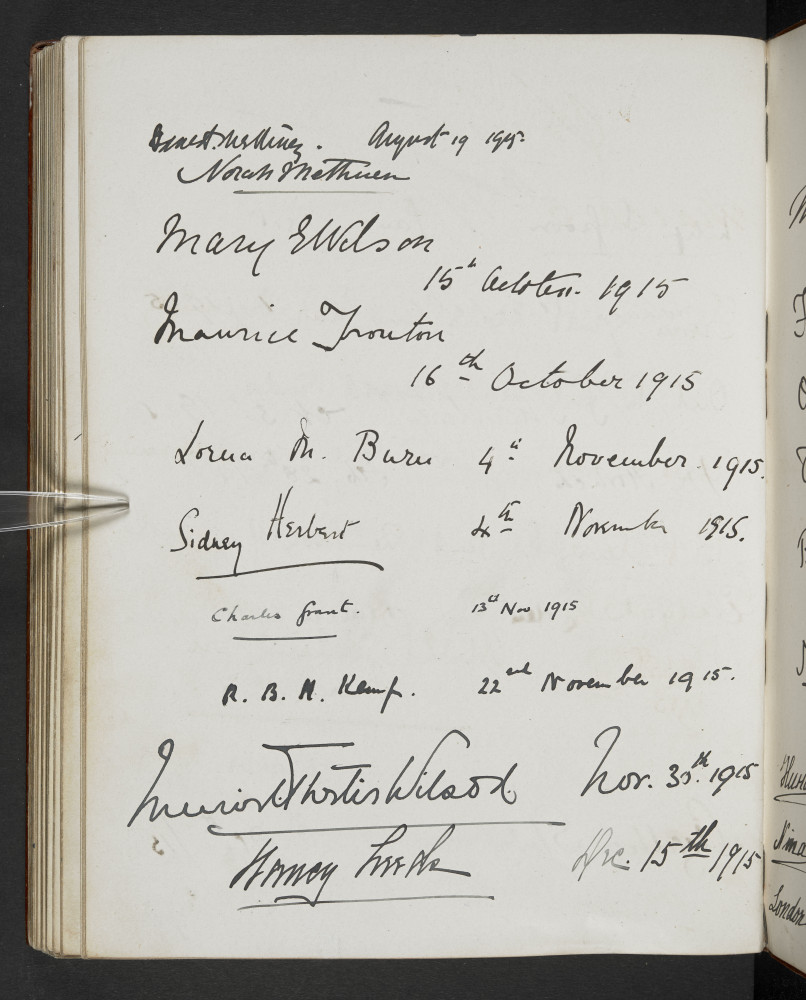 August 19 1915.
Norah Methuen
Mary E Wilson
15th October. 1915
Maurice Trouton
16th October 1915
Lorna M. Burn 4th November. 1915.
Sidney Herbert 4th November 1915.
Charles Grant. 13th Nov 1915
R. B. M. Kemp. 22nd November 1915.
Wilson Nov. 30th. 1915
Leeds Dec. 15th 1915
London